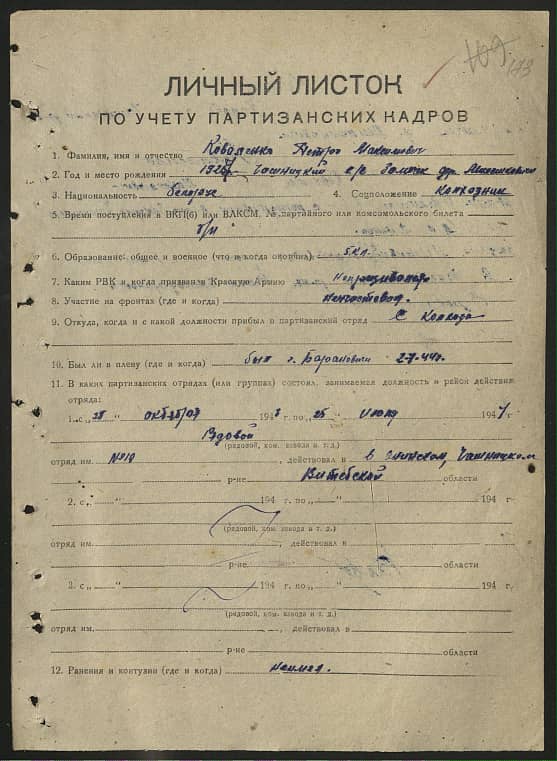 109.
173
ЛИЧНЫЙ ЛИСТОК
ПО УЧЕТУ ПАРТИЗАНСКИХ КАДРОВ
1. Фамилия, имя и отчество Коваленко Петро Максимович
2. Год и место рождения Чашницкий с/с дер.
3. Национальность белорус 4. Соцположение Колхозник
5. Время поступления в ВКП(б) или ВЛКСМ. № партийного или комсомольского билета
б/п
6. Образование: общее и военное (что и когда окончил) 5 кл.
7. Каким РВК и когда призван в Красную Армию
8. Участие на фронтах (где и когда)
9. Откуда, когда и с какой должности прибыл в партизанский отряд С Колхоза
10. Был ли в плену (где и когда) был г. Барановичи 2-7-44г.
11. В каких партизанских отрядах (или группах) состоял, занимаемая должность и район действия
отряда:
1. с „ 28 “ октября 194 г. по „ 25 “ Июля 194 г.
Рядовой
(рядовой, ком. взвода и т. д.)
отряд им. №10, действовал в Чашницком
р-не Витебской области
2. с „ “ 194 г. по „ “ 194 г.
(рядовой, ком. взвода и т. д.)
отряд им. , действовал в
р-не области
3. с „ “ 194 г. по „ “ 194 г.
(рядовой, ком. взвода и т. д.)
отряд им. , действовал в
р-не области
12. Ранения и контузии (где и когда)